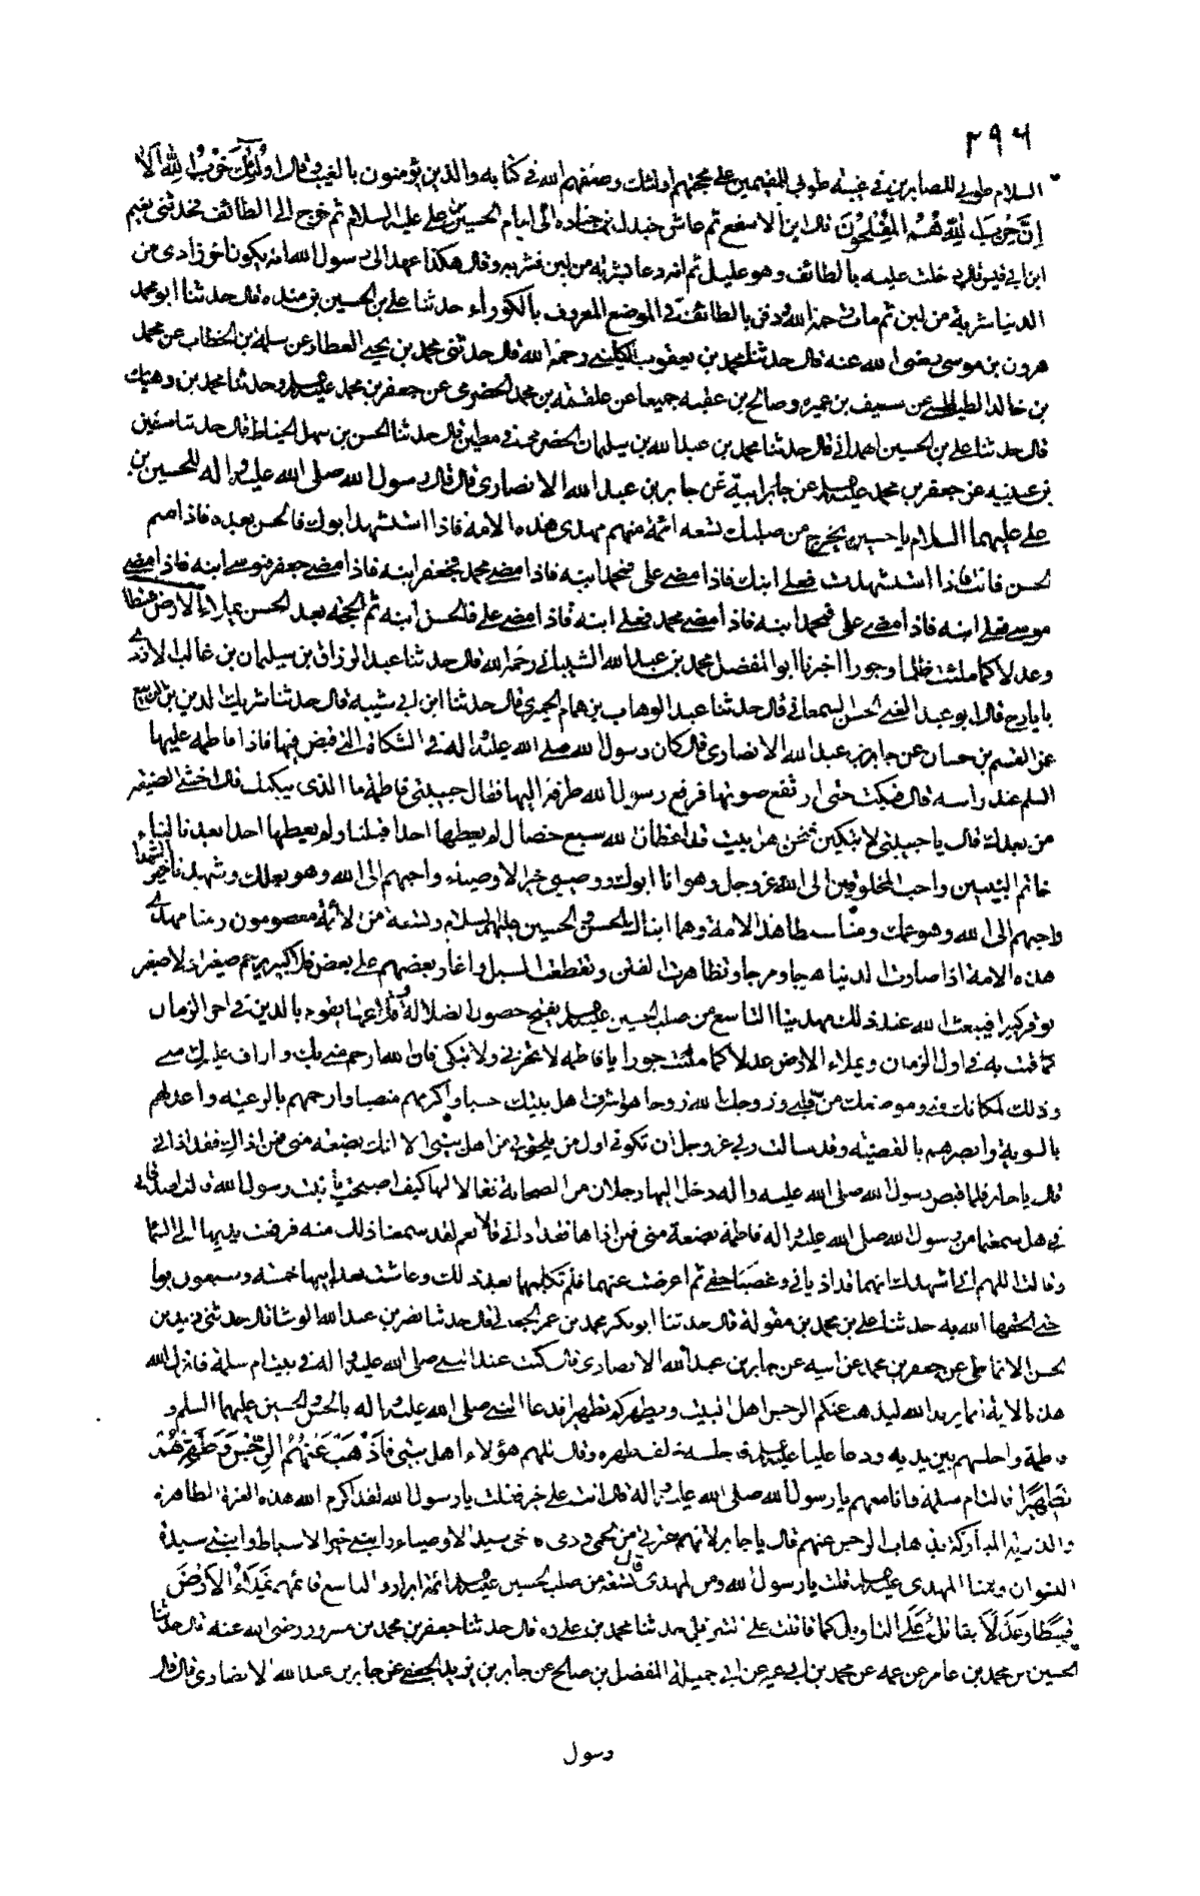 ٢٩٦
السلام طوبى للصابرين في غيبته طوبى للمقيمين على محجتهم اولئك وصفهم الله في كتابه والذين يؤمنون بالغيب وقال اولئك حزب الله الا
ان حزب الله هم المفلحون قال ابن الاسفع ثم عاش جندل بن جناده الى ايام الحسين بن علي عليه السلام ثم خرج الى الطائف فحدثني نعيم
ابن ابي قيس قال دخلت عليه بالطائف وهو عليل ثم انه دعا بشربة من لبن فشربه وقال هكذا عهد الى رسول الله انه يكون اخر زادي من
الدنيا شربة من لبن ثم مات رحمه الله ودفن بالطائف في الموضع المعروف بالكوراء حدثنا علي بن الحسين بن منده قال حدثنا ابو محمد
هرون بن موسى رضى الله عنه قال حدثنا محمد بن يعقوب الكليني رحمه الله قال حدثني محمد بن يحيى العطار عن سلمة بن الخطاب عن محمد
بن خالد الطيالسي عن سيف بن عميره وصالح بن عقبه جميعا عن علقمه بن محمد الحضرمي عن جعفر بن محمد عليه السلام وحدثنا محمد بن وهبان
قال حدثنا علي بن الحسين الهمداني قال حدثنا محمد بن عبد الله بن سليمان الحضرمي مطين قال حدثنا الحسن بن سهل الخياط قال حدثنا سفين
بن عيينه عن جعفر بن محمد عليه السلام عن ابيه عن جابر بن عبد الله الانصاري قال قال رسول الله صلى الله عليه واله للحسين بن
علي عليهما السلام يا حسين يخرج من صلبك تسعه ائمة منهم مهدى هذه الامة فاذا استشهد ابوك فالحسن بعده فاذا سم
الحسن فانت فاذا استشهدت فعلي ابنك فاذا مضى علي فمحمد ابنه فاذا مضى محمد فجعفر ابنه فاذا مضى جعفر فموسى ابنه فاذا مضى
موسى فعلي ابنه فاذا مضى علي فمحمد ابنه فاذا مضى محمد فعلي ابنه فاذا مضى علي فالحسن ابنه ثم الحجة بعد الحسن يملاء الارض قسطا
وعدلا كما ملئت ظلما وجورا اخبرنا ابو المفضل محمد بن عبد الله الشيباني رحمه الله قال حدثنا عبد الرزاق بن سليمان بن غالب الازدي
قال ابو عبد الغني الحسن السمعاني قال حدثنا عبد الوهاب بن همام الحميري قال حدثنا ابن ابي شيبه قال حدثنا شريك الدين بن الربيع
عن القسم بن حسان عن جابر بن عبد الله الانصاري قال كان رسول الله صلى الله عليه واله في الشكاة التي قبض فيها فاذا فاطمه عليها
السلم عند راسه قال فبكت حتى ارتفع صوتها فرفع رسول الله طرفه اليها فقال حبيبتي فاطمة ما الذي يبكيك قالت اخشى الضيعة
من بعدك قال يا حبيبتي لا تبكين فنحن اهل بيت قد اعطانا الله سبع خصال لم يعطها احدا قبلنا ولم يعطها احدا بعدنا لنا
خاتم النبيين واحب المخلوقين الى الله عز وجل وهو انا ابوك ووصيي خير الاوصياء واحبهم الى الله وهو بعلك وشهيدنا خير الشهداء
واحبهم الى الله وهو عمك ومنا سبطا هذه الامة وهما ابناك الحسن والحسين عليهما السلام وتسعة من الائمة معصومون ومنا مهدي
هذه الامة اذا صارت الدنيا هرجا ومرجا وتظاهرت الفتن وتقطعت السبل واغار بعضهم على بعض فلا كبير يرحم صغيرا ولا صغير
يوقر كبيرا فيبعث الله عند ذلك مهدينا التاسع من صلب الحسين عليه السلام يفتح حصون الضلالة يقوم بالدين في اخر الزمان
كما قمت به في اول الزمان ويملاء الارض عدلا كما ملئت جورا يا فاطمه لا تحزني ولا تبكي فان الله ارحم مني بك واراف عليك مني
وذلك لمكانك وموضعك من قلبي وزوجك الله زوجا هو اشرف اهل بيتك حسبا واكرمهم منصبا وارحمهم بالرعيه واعدلهم
بالسوية وابصرهم بالقضية وقد سالت ربي عز وجل ان تكوني اول من يلحقني من اهل بيتي الا انك بضعه مني فمن اذاك فقد اذاني
قال يا جابر فلما قبض رسول الله صلى الله عليه واله دخل اليها رجلان من الصحابة فقالا لها كيف اصبحت يا بنت رسول الله قالت اصدقاني
هل سمعتما من رسول الله صلى الله عليه واله فاطمة بضعة مني فمن اذاها فقد اذاني قالا نعم لقد سمعنا ذلك منه فرفعت يديها الى السما
وقالت اللهم اني اشهدك انهما قد اذياني وغصبا حقي ثم اعرضت عنهما فلم تكلمهما بعد ذلك وعاشت بعد ابيها خمسه وسبعون يوما
حتى الحقها الله به حدثنا علي بن محمد بن مقولة قال حدثنا ابو بكر محمد بن عمر الجعابي قال حدثنا نصر بن عبد الله الوشا قال حدثني زيد بن
الحسن الانماطي عن جعفر بن محمد عن ابيه عن جابر بن عبد الله الانصاري قال كنت عند النبي صلى الله عليه واله في بيت ام سلمة فانزل الله
هذه الاية انما يريد الله ليذهب عنكم الرجس اهل البيت ويطهركم تطهيرا فدعا النبي صلى الله عليه واله بالحسن والحسين عليهما السلم و
فاطمة واجلسهم بين يديه ودعا عليا عليه السلام فاجلسه خلف ظهره وقال اللهم هؤلاء اهل بيتي فاذهب عنهم الرجس وطهرهم
تطهيرا قالت ام سلمة وانا معهم يا رسول الله صلى الله عليه واله قال انت على خير فقلت يا رسول الله لقد اكرم الله هذه العترة الطاهرة
والذرية المباركة بذهاب الرجس عنهم قال يا جابر لانهم عترتي من لحمي ودمي فاخي سيد الاوصياء وابني خير الاسباط وابنتي سيدة
النسوان ومنا المهدي قلت يا رسول الله ومن المهدي قال تسعة من صلب الحسين عليه السلام ائمة ابرار والتاسع قائمهم يملاء الارض
قسطا وعدلا يقاتل على التاويل كما قاتلت على التنزيل حدثنا محمد بن علي ره قال حدثنا جعفر بن محمد بن مسرور رضى الله عنه قال حدثنا
الحسين بن محمد بن عامر عن عمه عن محمد بن ابي عمير عن ابي جميلة المفضل بن صالح عن جابر بن يزيد الجعفي عن جابر بن عبد الله الانصاري قال قال
رسول